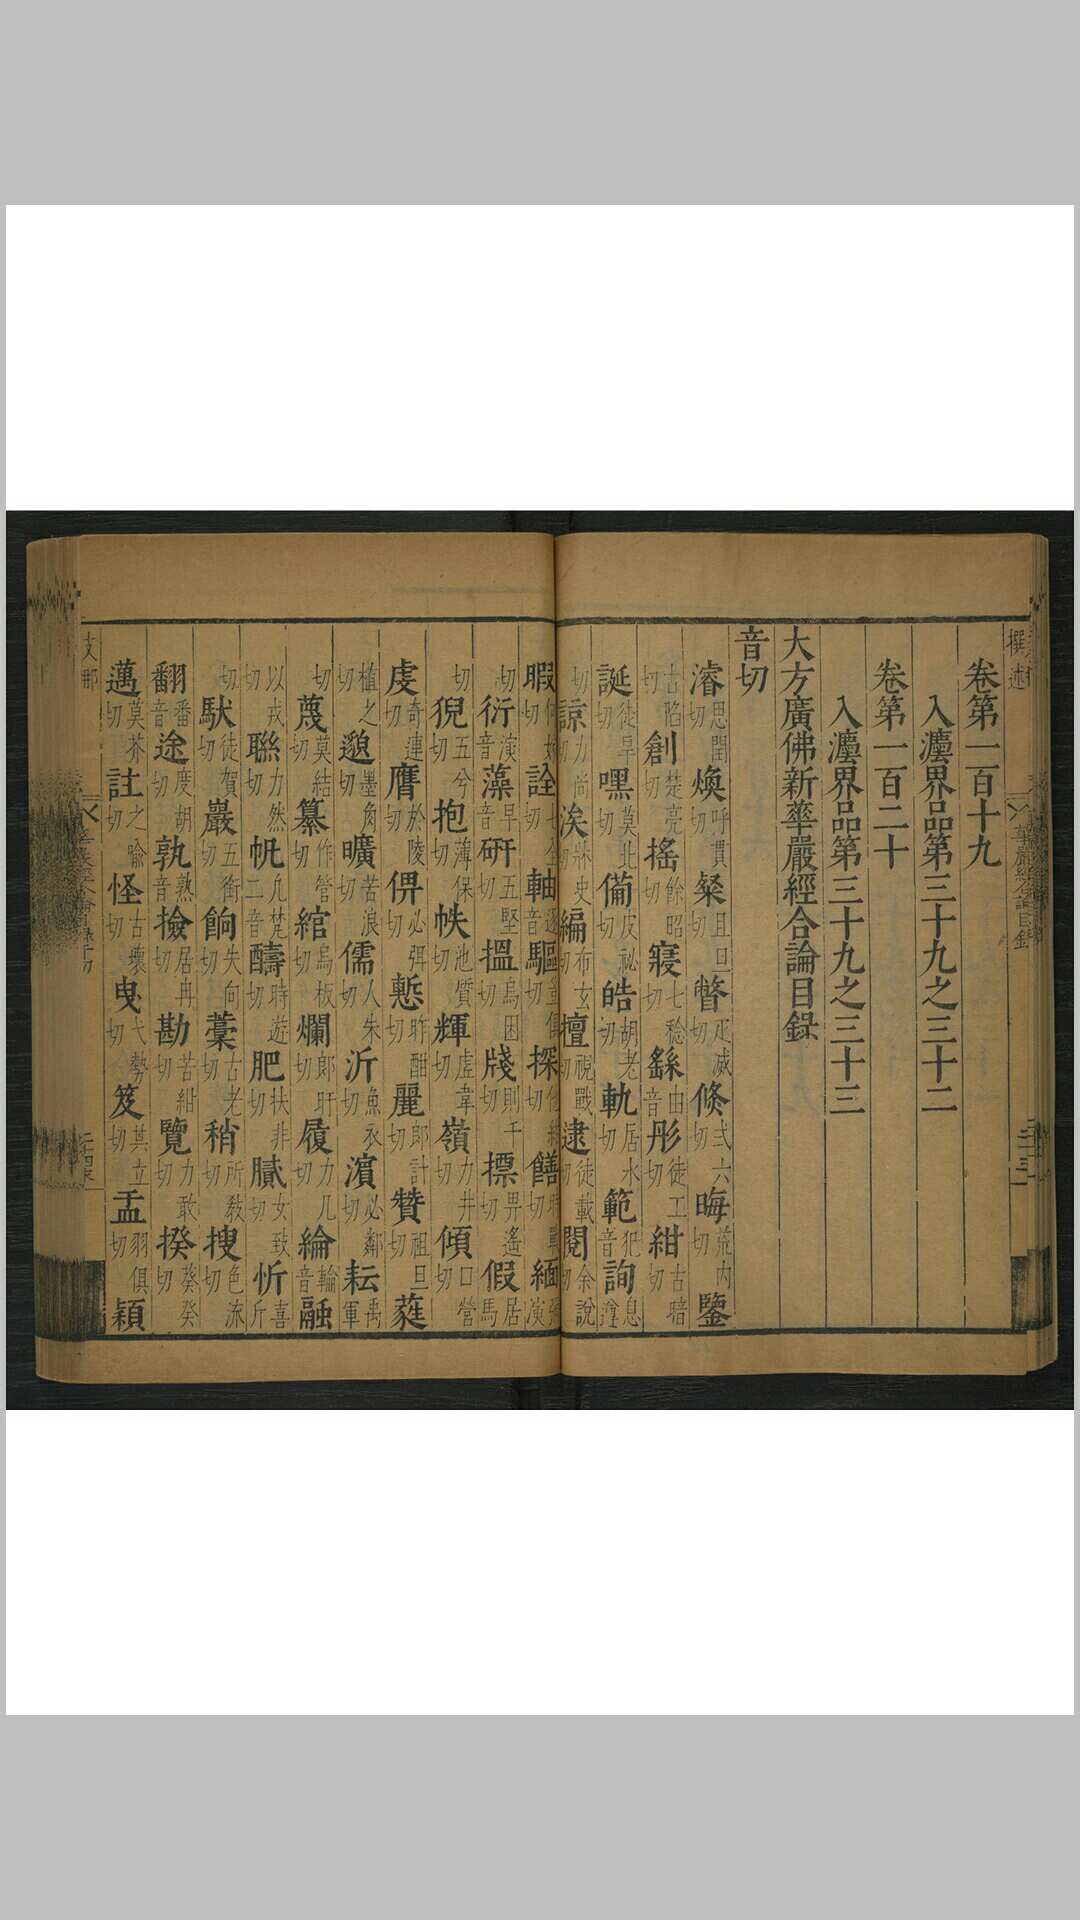 撰述
華嚴經合論目錄
卷第一百十九
入灋界品第三十九之三十二
卷第一百二十
入灋界品第三十九之三十三
大方廣佛新華嚴經合論目錄
音切
濬思閏切 煥呼貫切 粲且旦切 瞥疋滅切 倏式六切 晦荒內切 鑒
古陷切 創楚亮切 搖餘昭切 寢七稔切 繇音由 彤徒工切 紺古暗切
誕徒旱切 嘿莫北切 備皮祕切 皓胡老切 軌居水切 範音犯 詢息遵
切 諒力尚切 涘牀史切 編布玄切 擅視戰切 逮徒載切 閱余說切
暇 詮 軸音逐 驅 探 饍時戰切 緬
切 衍音演 藻音早 研五堅切 搵烏困切 牋則千切 摽畀遙切 假居馬
切 猊五兮切 抱薄保切 帙池質切 輝虛韋切 嶺力井切 傾口營切
虔奇連切 膺於陵切 俾必弭切 慙昨酣切 麗郎計切 贊祖旦切 蕤
植之切 邈墨角切 曠苦浪切 儒人朱切 沂魚衣切 濵必鄰切 耘禹軍
切 蔑莫結切 纂作管切 綰烏板切 爛郎旰切 履力几切 綸音輪 融
以戎切 聯力然切 帆凡梵二音 醻時遊切 肥扶非切 膩女致切 忻喜斤
切 馱徒賀切 巖五銜切 餉失向切 藁古老切 稍所敎切 搜色流切
翻音番 途度胡切 孰音熟 撿居冉切 勘苦紺切 覽力敢切 揆葵癸切
邁莫芥切 註之喩切 怪古壞切 曳弋勢切 笈其立切 盂羽俱切 穎
支那